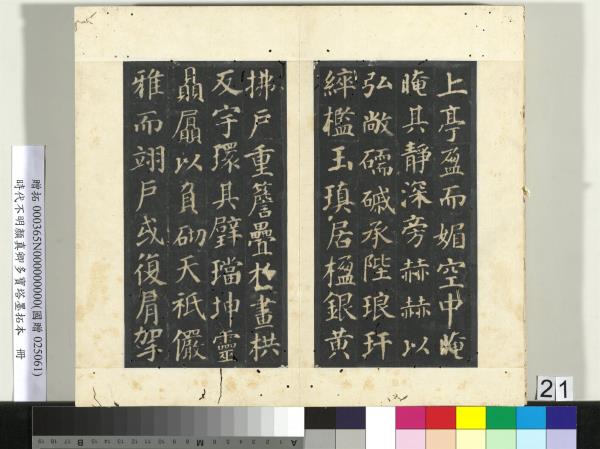 上亭盈而媚空中晻
晻其靜深旁赫赫以
弘敞礝磩承陛琅玕
綷檻玉瑱居楹銀黃
拂戶重簷疊於畫栱
反宇環其璧璫坤靈
贔屭以負砌天祇儼
雅而翊戶或復肩挐
贈拓 000365N000000000(國贈 025061)
時代不明顏真卿多寶塔墨拓本 冊
21